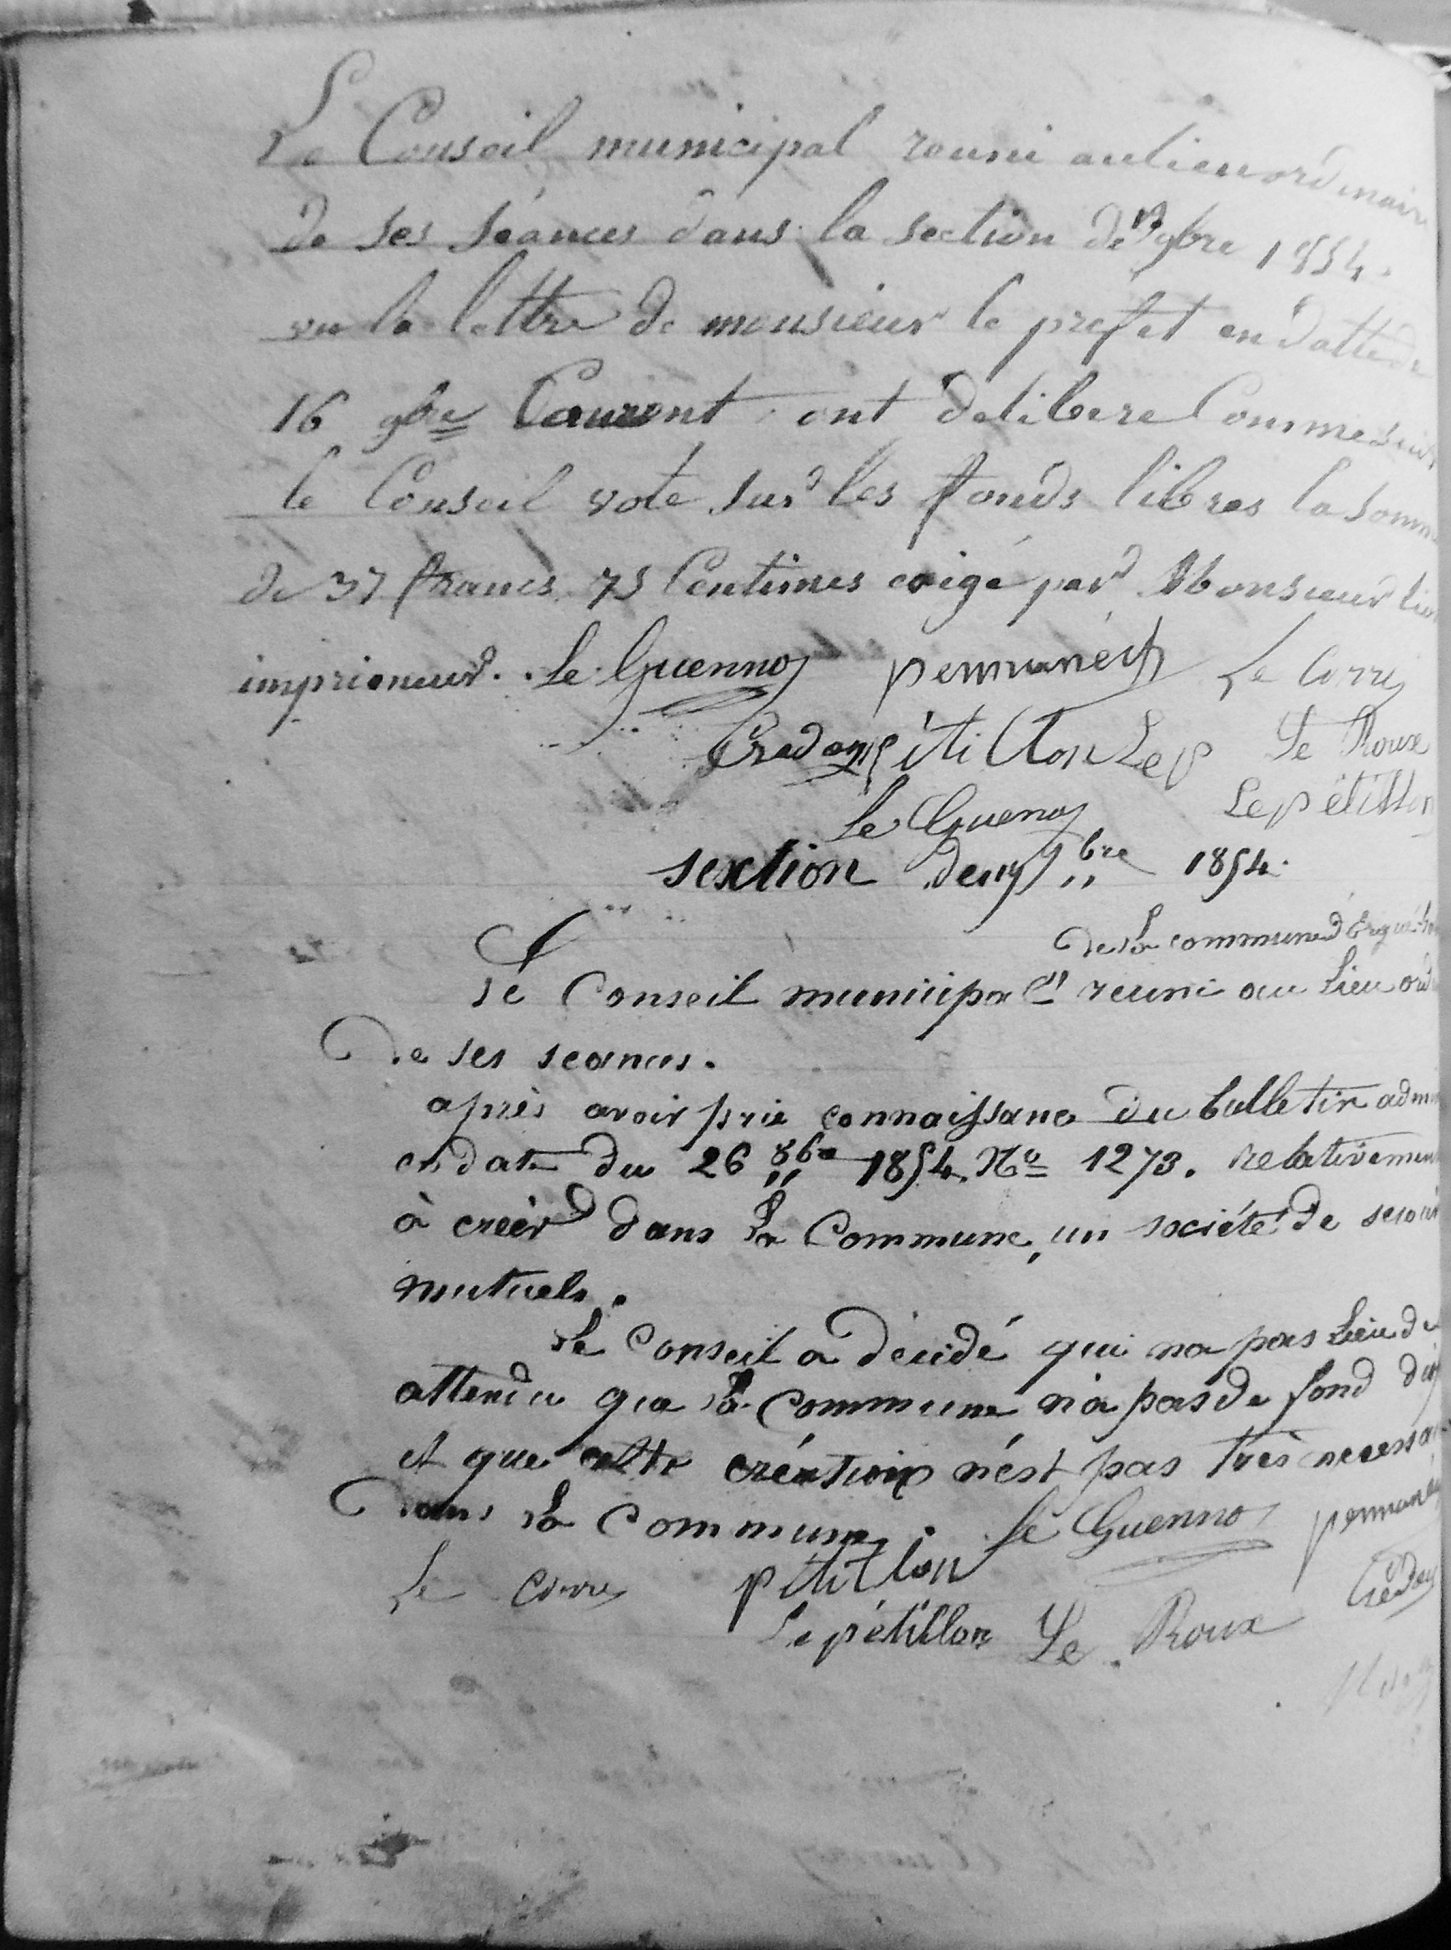 Le Conseil municipal reuni au lieu ordinaire
de ses séances dans la section de 9bre 1854.
vu la lettre de monsieur le prefet en datte de
16 9bre Courent ont delibere Comme suit
le Conseil vote sur les fonds libres la somme
de 37 francs 75 Centimes exigé par Monsieur
imprimeur. Le Guennos Le Corre
Credou pétillon Lep Le Roux
Le Guenos Lepétillon
sextion de 9bre 1854.
De la commune d'Ergué
Le Conseil municipal reuni au Lieu ord
De ses seances.
après avoir prie connaissance Du bulletin adm
en date du 26 8bre 1854. No 1273. relativemen
à creér dans la Commune, un société De secour
mutuels.
Le Conseil a Decidé qui na pas Lieu de
attendu que la commune n'a pas de fond
et que cette création n'ést pas très necessa
Dans la commune. Le Guennos
Le Corre pétillon Credou
Lepétillon Le Roux